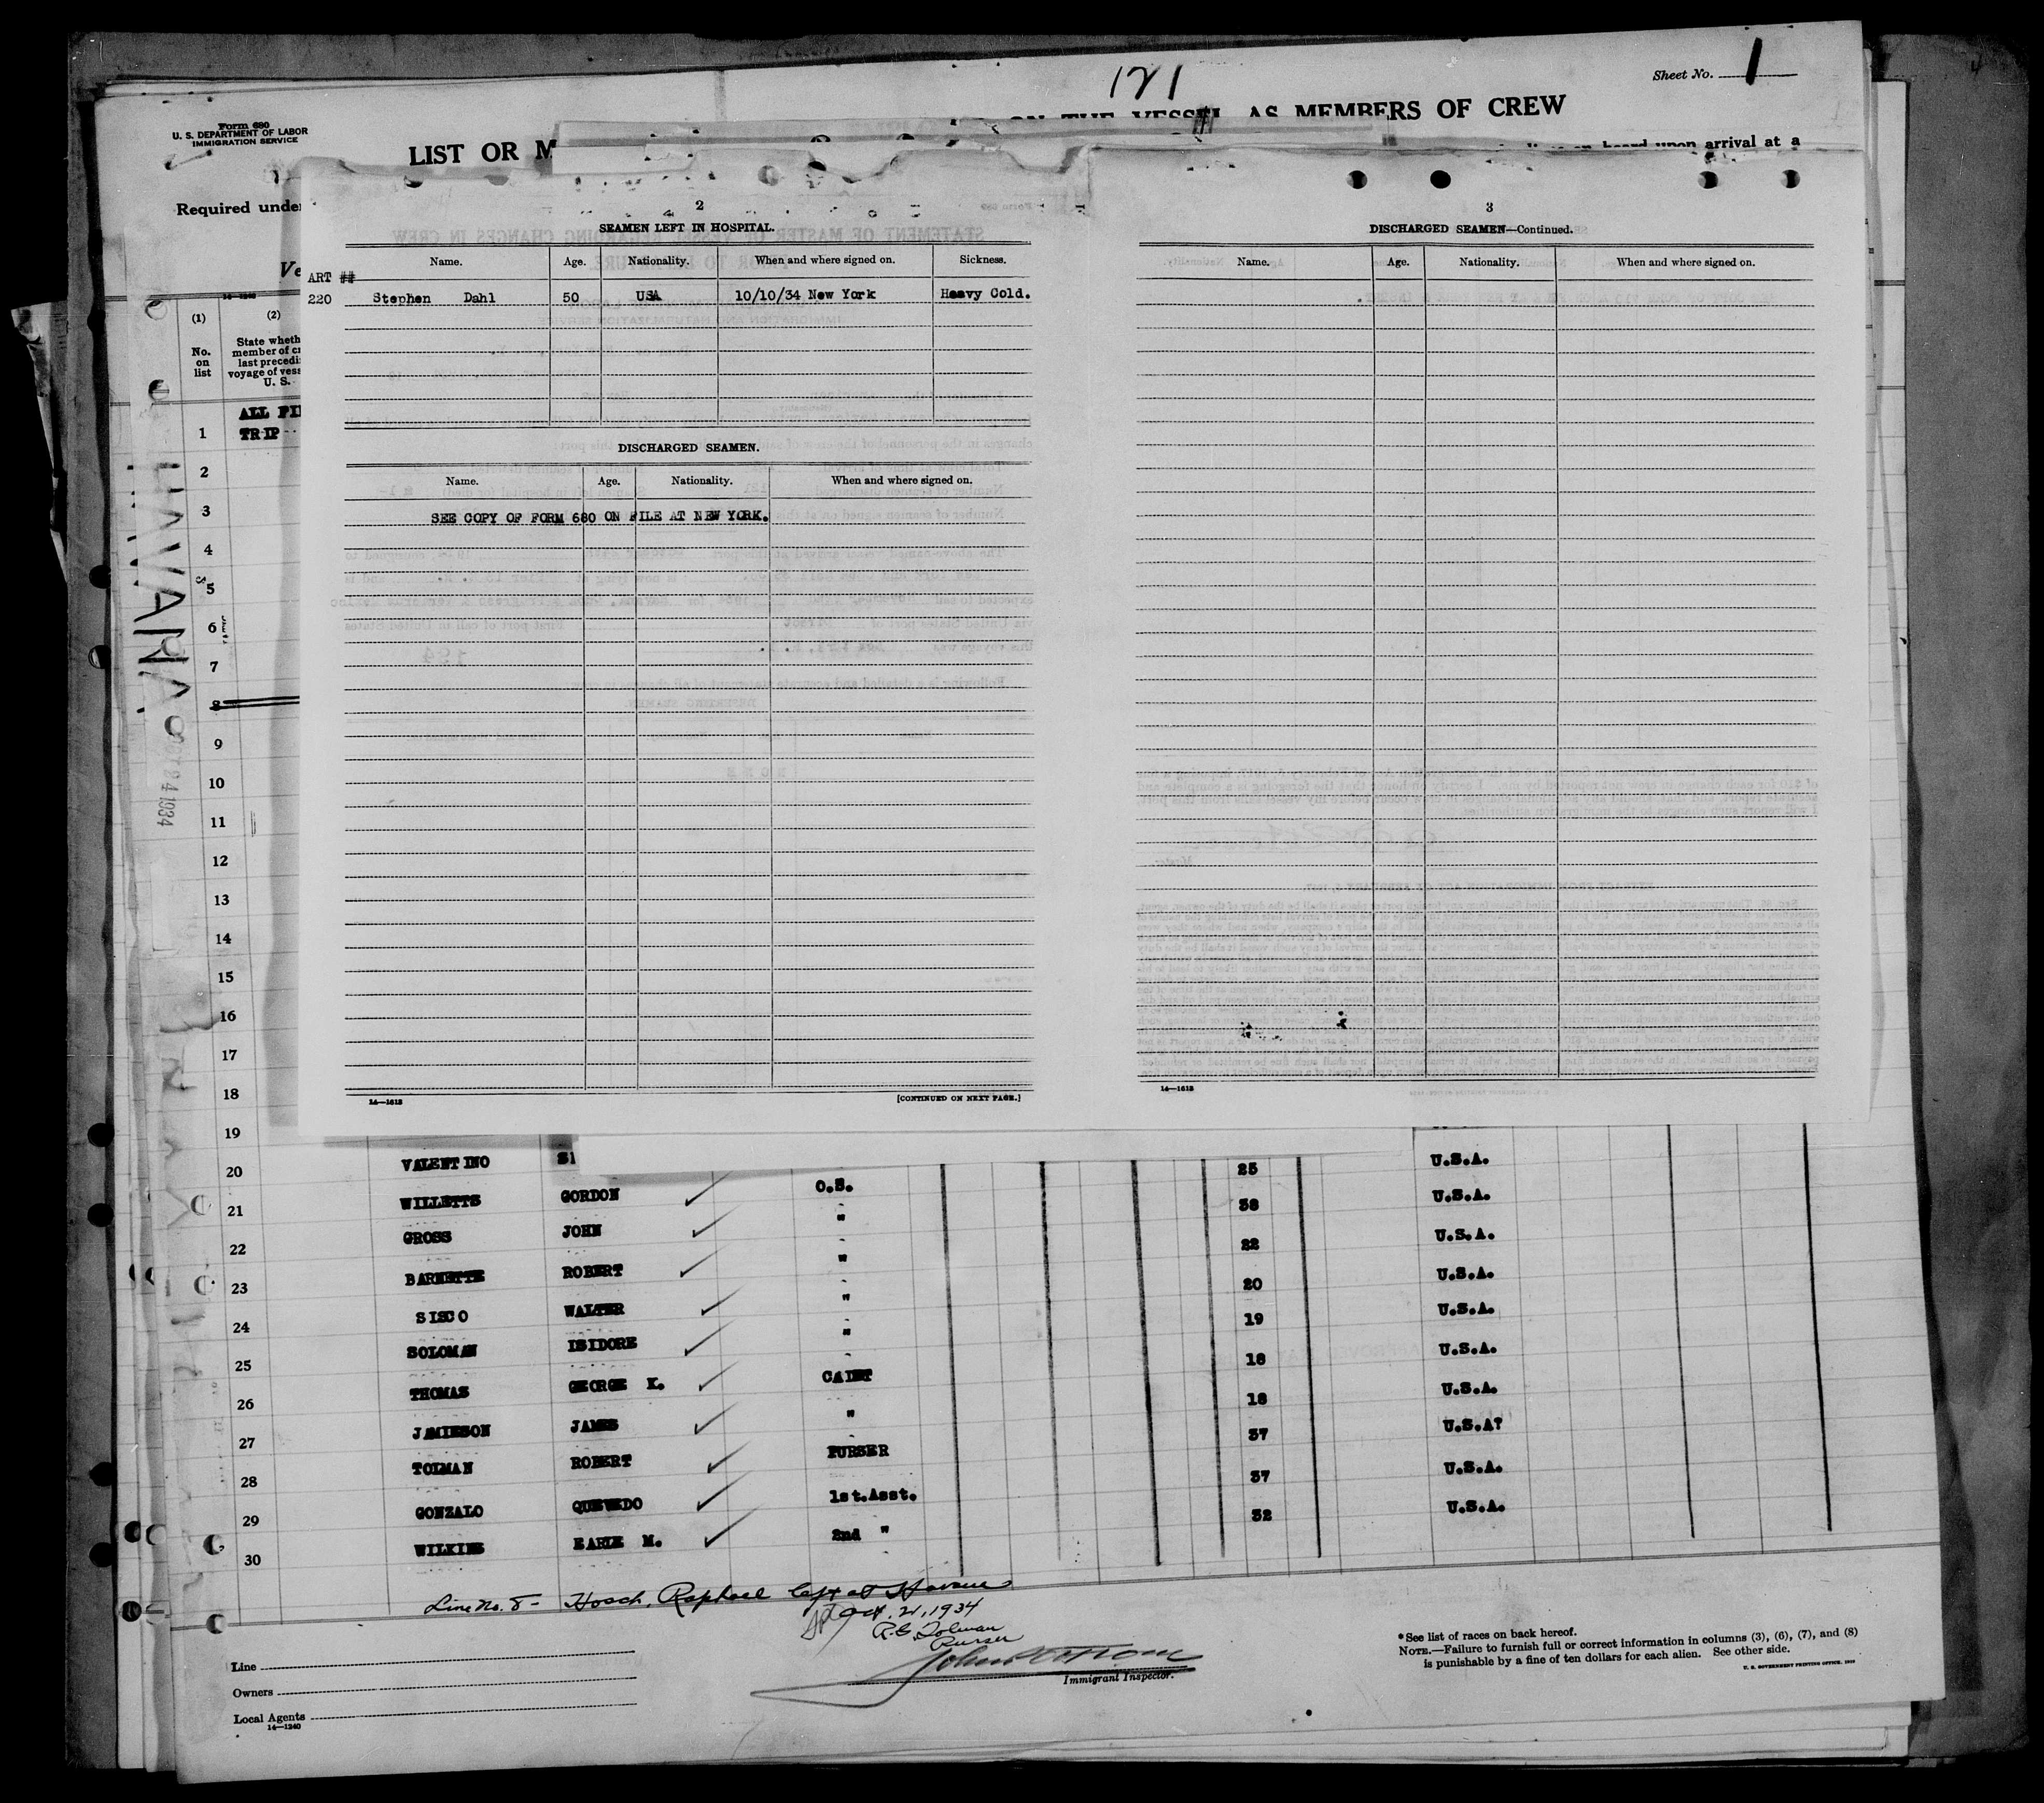 121
Sheet No. 1
Form 680
U. S. DEPARTMENT OF LABOR
IMMIGRATION SERVICE
LIST OR M
ON THE VESSEL AS MEMBERS OF CREW
on board upon arrival at a
Required unde
Ve
14—1240
(1)
(2)
No. on list
State wheth
member of cr
last precedi
voyage of vess
U. S.
ALL FI
TRIP
HAVANA
2
SEAMEN LEFT IN HOSPITAL.
Name. Age. Nationality. When and where signed on. Sickness.
ART ##
220 Stephen Dahl 50 USA 10/10/34 New York Heavy Cold.
DISCHARGED SEAMEN.
Name. Age. Nationality. When and where signed on.
SEE COPY OF FORM 680 ON FILE AT NEW YORK.
14—1613
[CONTINUED ON NEXT PAGE.]
3
DISCHARGED SEAMEN—Continued.
Name. Age. Nationality. When and where signed on.
14—1613
1
2
3
4
5
6
7
8
9
10
11
12
13
14
15
16
17
18
19
20 VALENTINO 25 U.S.A.
21 WILLETTS GORDON O.S. 38 U.S.A.
22 GROSS JOHN " 22 U.S.A.
23 BARNETTE ROBERT " 20 U.S.A.
24 SISCO WALTER " 19 U.S.A.
25 SOLOMAN ISIDORE " 18 U.S.A.
26 THOMAS GEORGE K. CADET 18 U.S.A.
27 JAMIESON JAMES " 37 U.S.A?
28 TOLMAN ROBERT PURSER 37 U.S.A.
29 GONZALO QUEVEDO 1st.Asst. 32 U.S.A.
30 WILKINS EARLE M. 2nd "
Line No. 8 - Hosch, Raphael left at Havana
Oct. 21, 1934
R.C. Tolman
Purser
Immigrant Inspector.
Line
Owners
Local Agents
14—1240
*See list of races on back hereof.
NOTE.—Failure to furnish full or correct information in columns (3), (6), (7), and (8)
is punishable by a fine of ten dollars for each alien. See other side.
U. S. GOVERNMENT PRINTING OFFICE